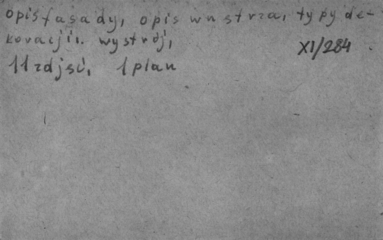 opis fasady, opis wnętrza, typy de-
koracji i wystrój,
11 zdjęć, 1 plan
XI/284